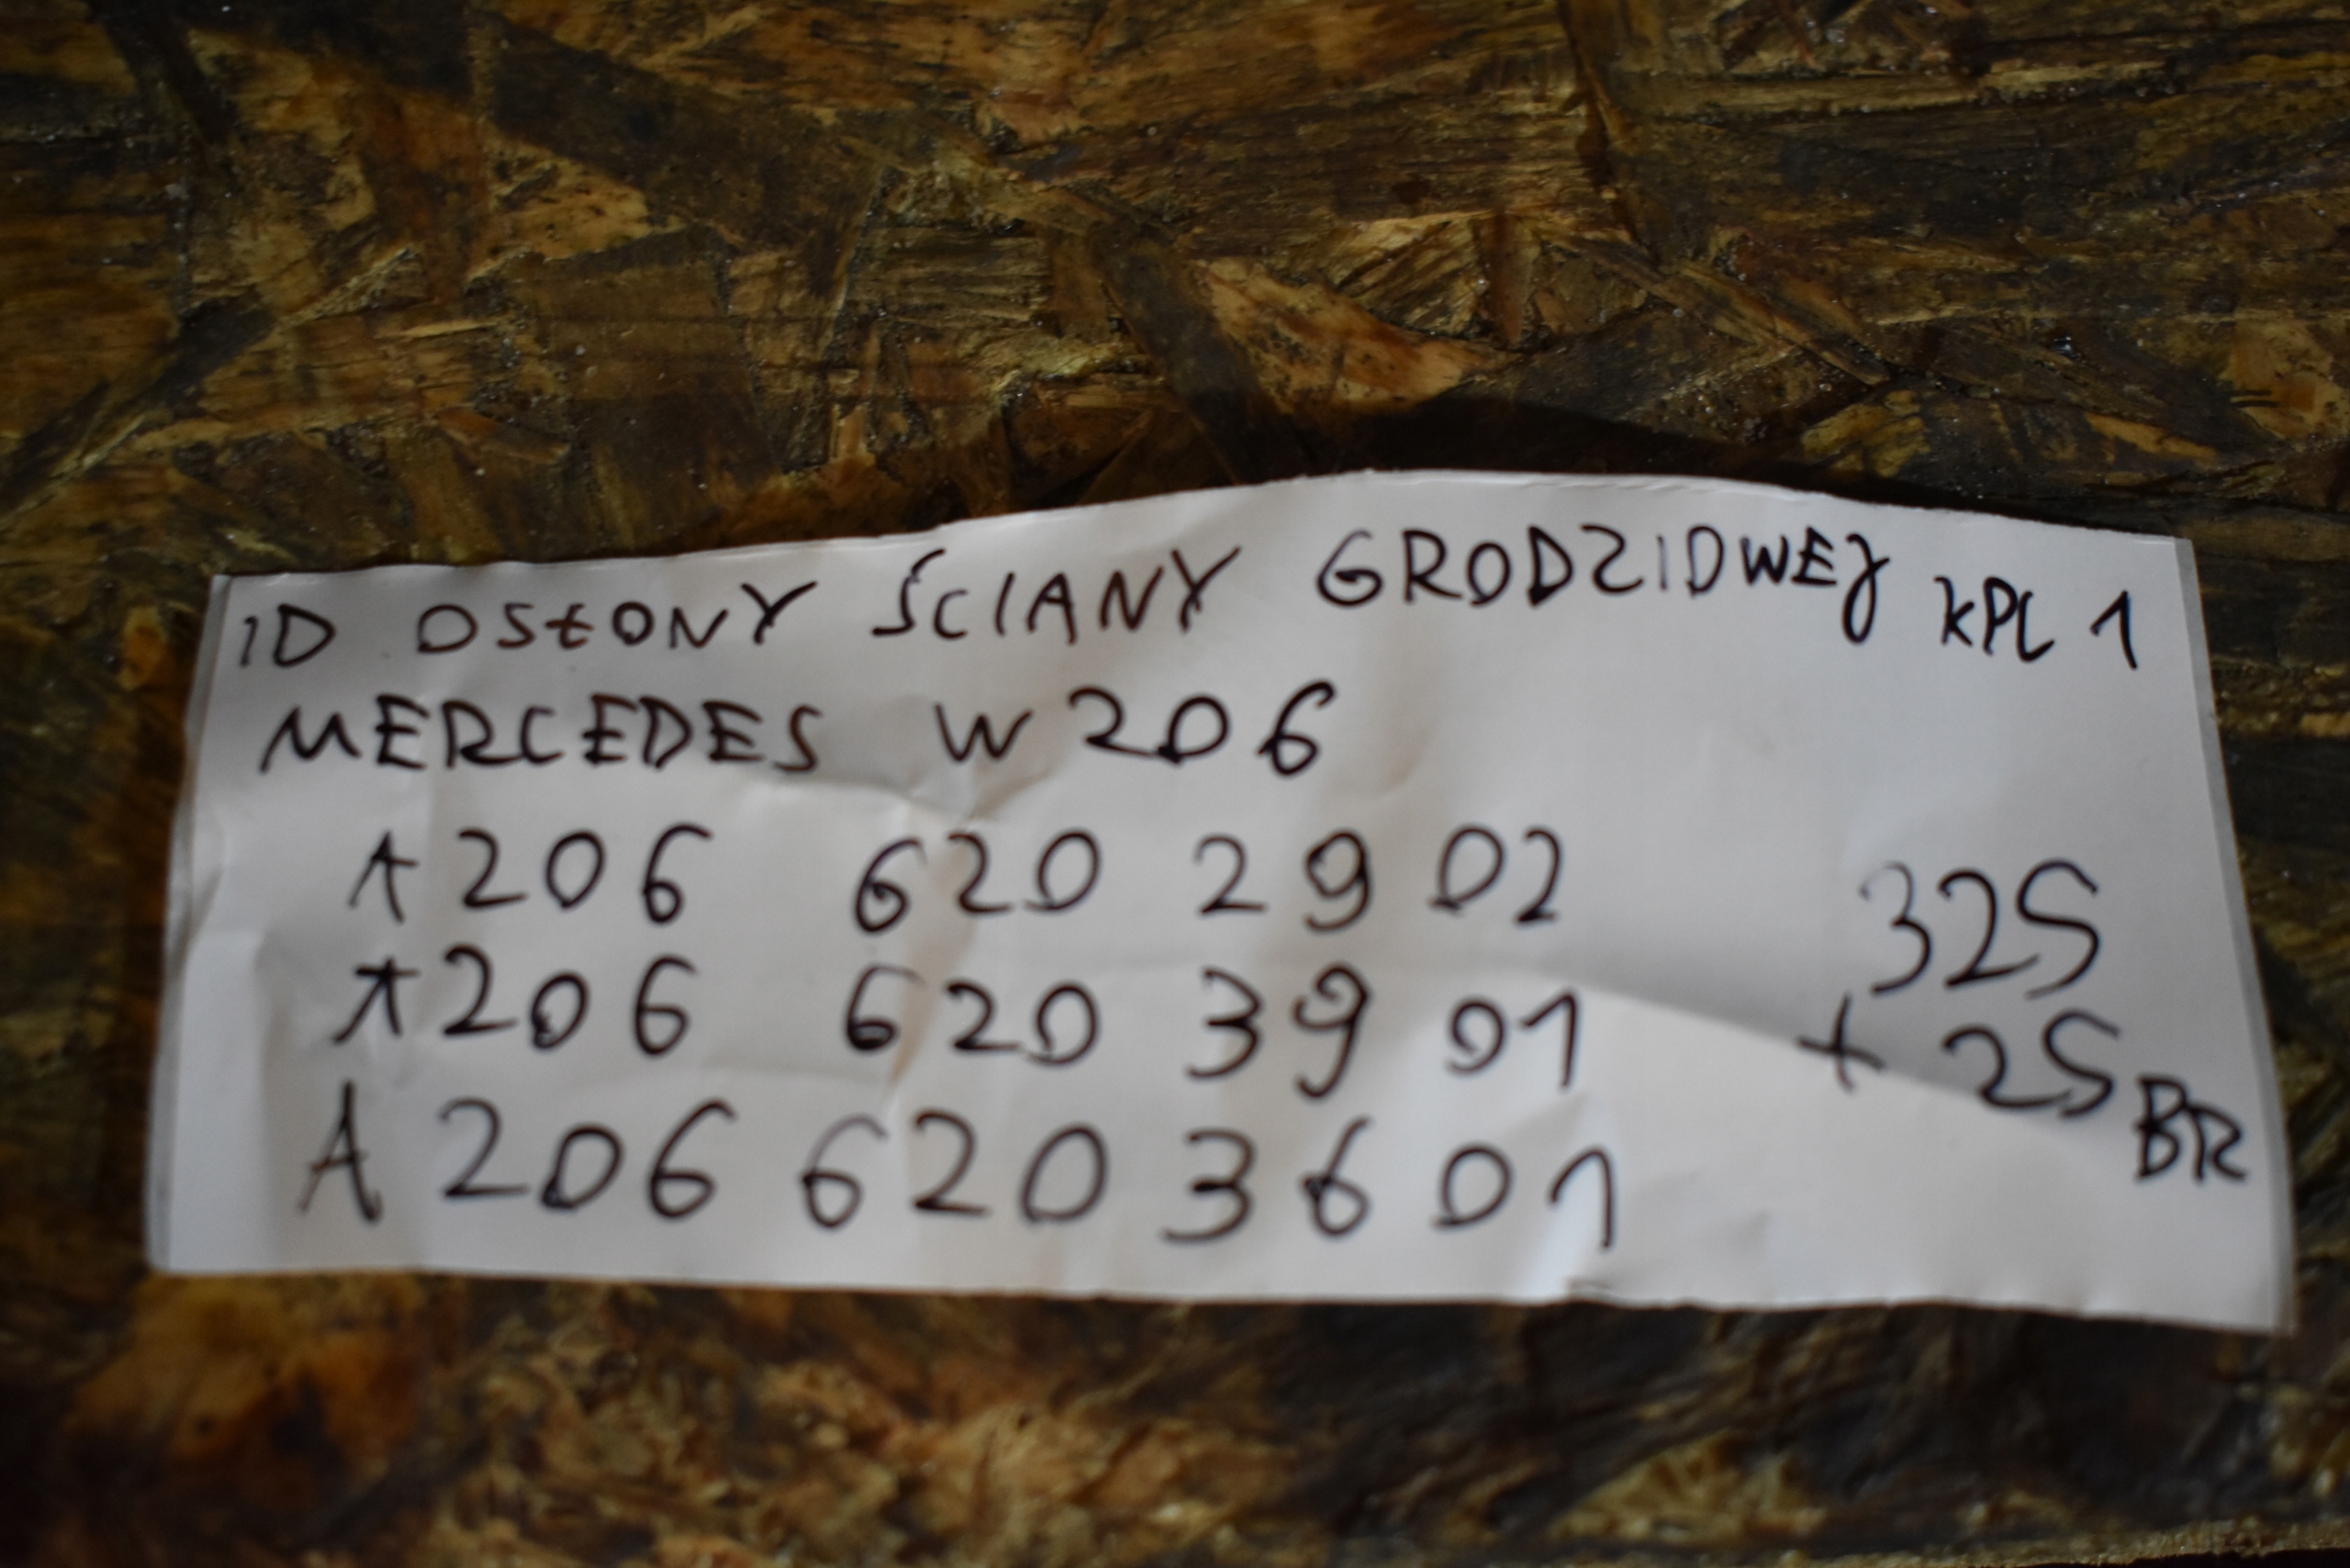 ID OSŁONY ŚCIANY GRODZIOWEJ KPL 1
MERCEDES W206
A206 620 29 02
A206 620 39 01
A 206 620 36 01
325
+ 25 BR